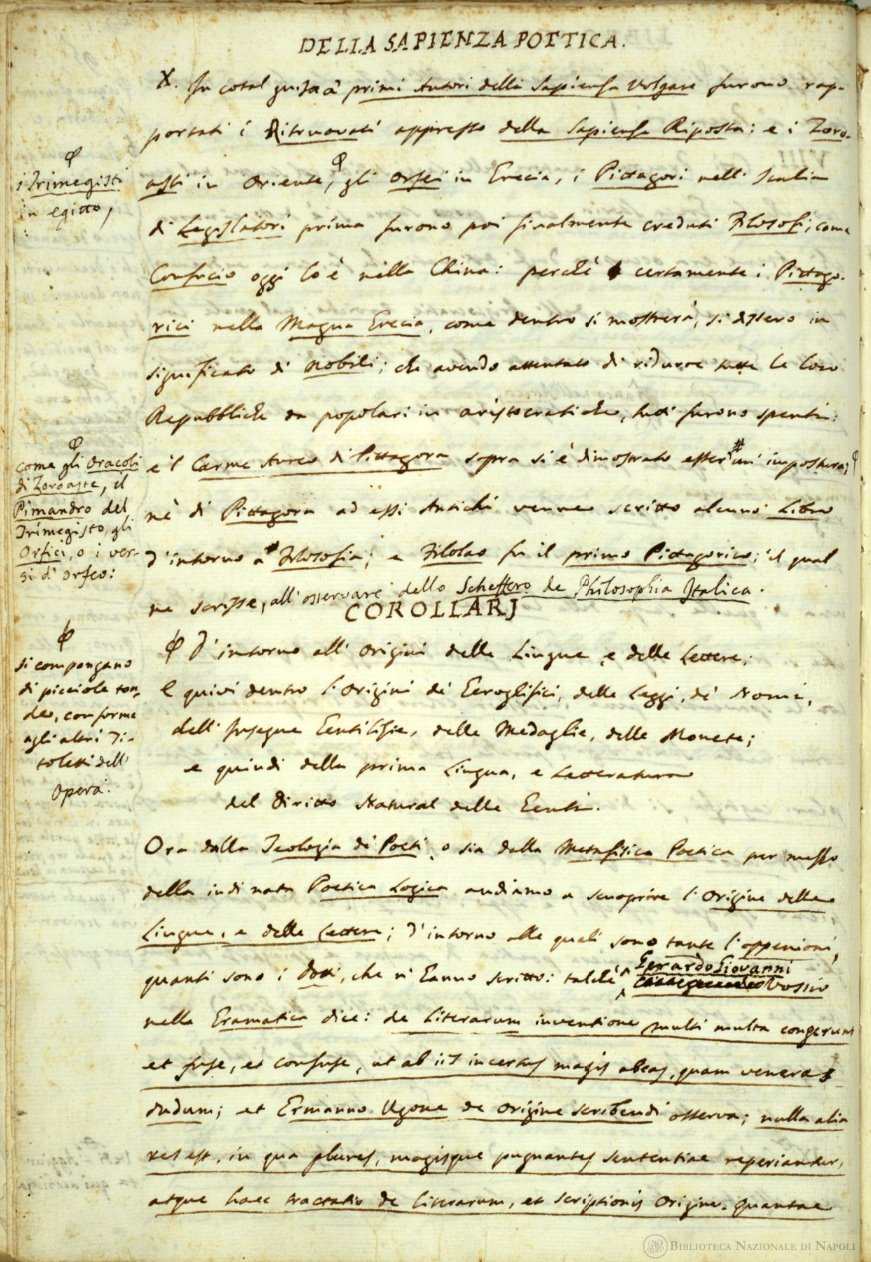 DELLA SAPIENZA POETICA.
X. In cotal guisa a' primi Autori della Sapienza Volgare furono rap-
portati i Ritruovati appresso della Sapienza Riposta: e i Zoro-
asti in Oriente, φ gli Orfei in Grecia, i Pittagori nell' Italia
φ
i Trimegisti
in Egitto,
di Legislatori prima furono poi finalmente creduti Filosofi, come
Confucio oggi lo è nella China: perchè certamente i Pittago-
rici nella Magna Grecia, come dentro si mostrerà, si dissero in
significato di Nobili; che avendo attentato di ridurre tutte le loro
Repubbliche da popolari in aristocratiche, tutti furono spenti:
e 'l Carme Aureo di Pittagora sopra si è dimostrato esser' un' impostura; φ
φ
come gli Oracoli
di Zoroaste, il
Pimandro del
Trimegisto, gli
Orfici, o i ver-
si d' Orfeo:
nè di Pittagora ad essi Antichi venne scritto alcuno Libro
d' intorno a Filosofia; e Filolao fu il primo Pittagorico, il qual
ne scrisse, all' osservare dello Scheffero de Philosophia Italica.
COROLLARJ
φ D' intorno all' Origini delle Lingue, e delle Lettere;
e quivi dentro l' Origini de' Geroglifici, delle Leggi, de' Nomi,
dell' Insegne Gentilizie, delle Medaglie, delle Monete;
e quindi della prima Lingua, e Letteratura
del Diritto Natural delle Genti.
φ
si compongano
di picciole ton-
de, conforme
agli altri Ti-
toletti dell'
Opera.
Ora dalla Teologia de' Poeti, o sia dalla Metafisica Poetica per mezzo
della indi nata Poetica Logica andiamo a scuoprire l' Origine delle
Lingue, e delle Lettere; d' intorno alle quali sono tante l' oppenioni,
quanti sono i Dotti, che n' hanno scritto: talchè Gerardo Giovanni Vossio
nella Gramatica dice: de Literarum inventione multi multa congerunt
et fuse, et confuse, ut ab iis incertus magis abeas, quam veneras
dudum; et Ermanno Ugone de Origine scribendi osserva; nulla alia
res est, in qua plures, magisque pugnantes sententiae reperiantur,
atque haec tractatio de literarum, et scriptionis origine. Quantae
BIBLIOTECA NAZIONALE DI NAPOLI